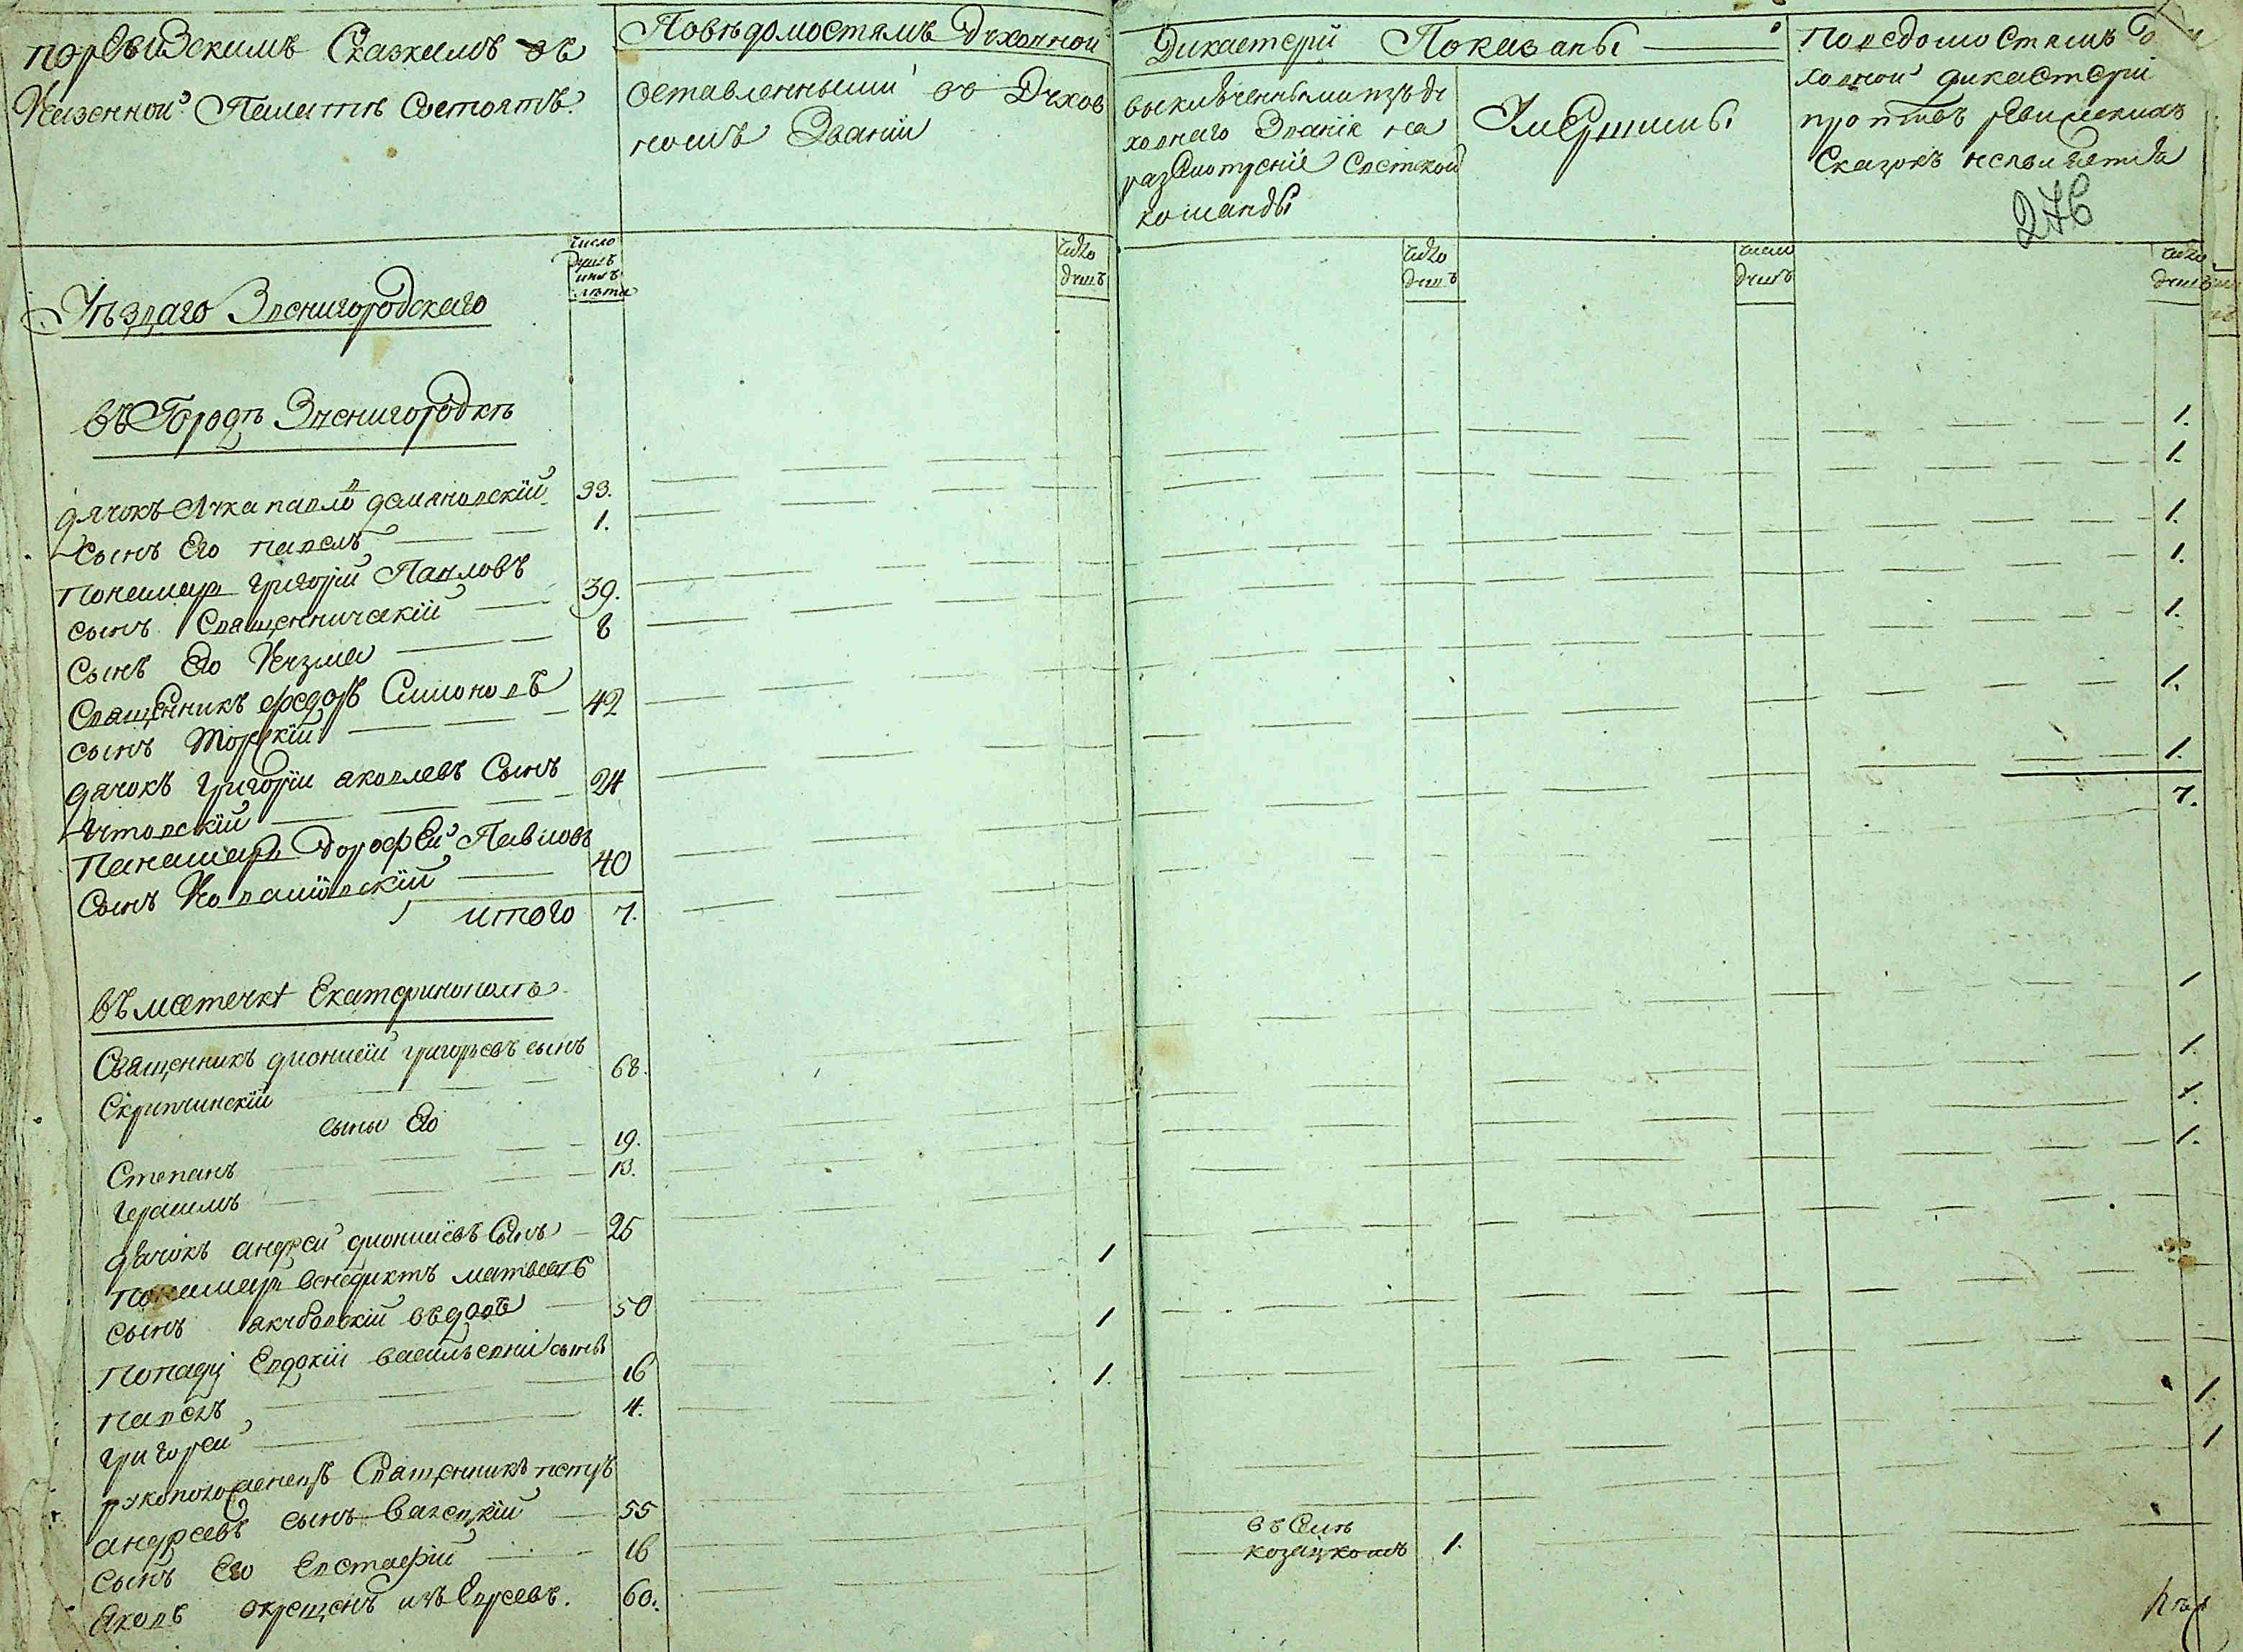 По ревизскимъ Сказкамъ въ
Казенной Палатѣ Состоятъ
По вѣдомостямъ Духовной
Дикастерiи Показаны
оставленными во Духов
номъ Званiи
выключенными изъ ду
ховнаго Званiя на
разсмотренiе Светской
команды
Умершими
По ведомостямъ
ховной дикастерiи
противъ ревизскихъ
Сказокъ не
276
число
душъ
лѣта
число
душъ
число
душъ
число
душъ
число
душъ
Уѣздаго Звенигородскаго
Въ Городѣ Звенигородкѣ
дячокъ Лука павло демяновскiй 33. 1.
Сынъ Его павелъ 1. 1.
Понамарь григорiй Павловъ
сынъ Священническiй 39. 1.
Сынъ Его Кузма 8 1.
Священникъ федоръ Симоновъ
сынъ 42 1.
дячокъ григорiй яковлевъ Сынъ
24 1.
Панамарь Дорофей Павловъ
Сынъ 40 1.
итого 7. 7.
Въ местечкѣ Екатеринополѣ
Священникъ дионисiй григорьевъ сынъ
Скрипчинскiй 68. 1
сыны Его
Степанъ 19. 1.
герасимъ 13. 1.
дячокъ андрей дионисiевъ Сынъ 25 1.
Понамарь венедиктъ матвеевъ
сынъ якубовскiй вдовъ 50 1
Попадьi Евдокiи васильевни сыны
павелъ 16 1
григорей 4. 1.
рукоположенецъ Священникъ петръ
андреевъ сынъ 55 1.
Сынъ Его Евстафiй 16 1
Яковъ окрещенъ изъ Евреевъ. 60.
въ Селѣ
козацкомъ 1.